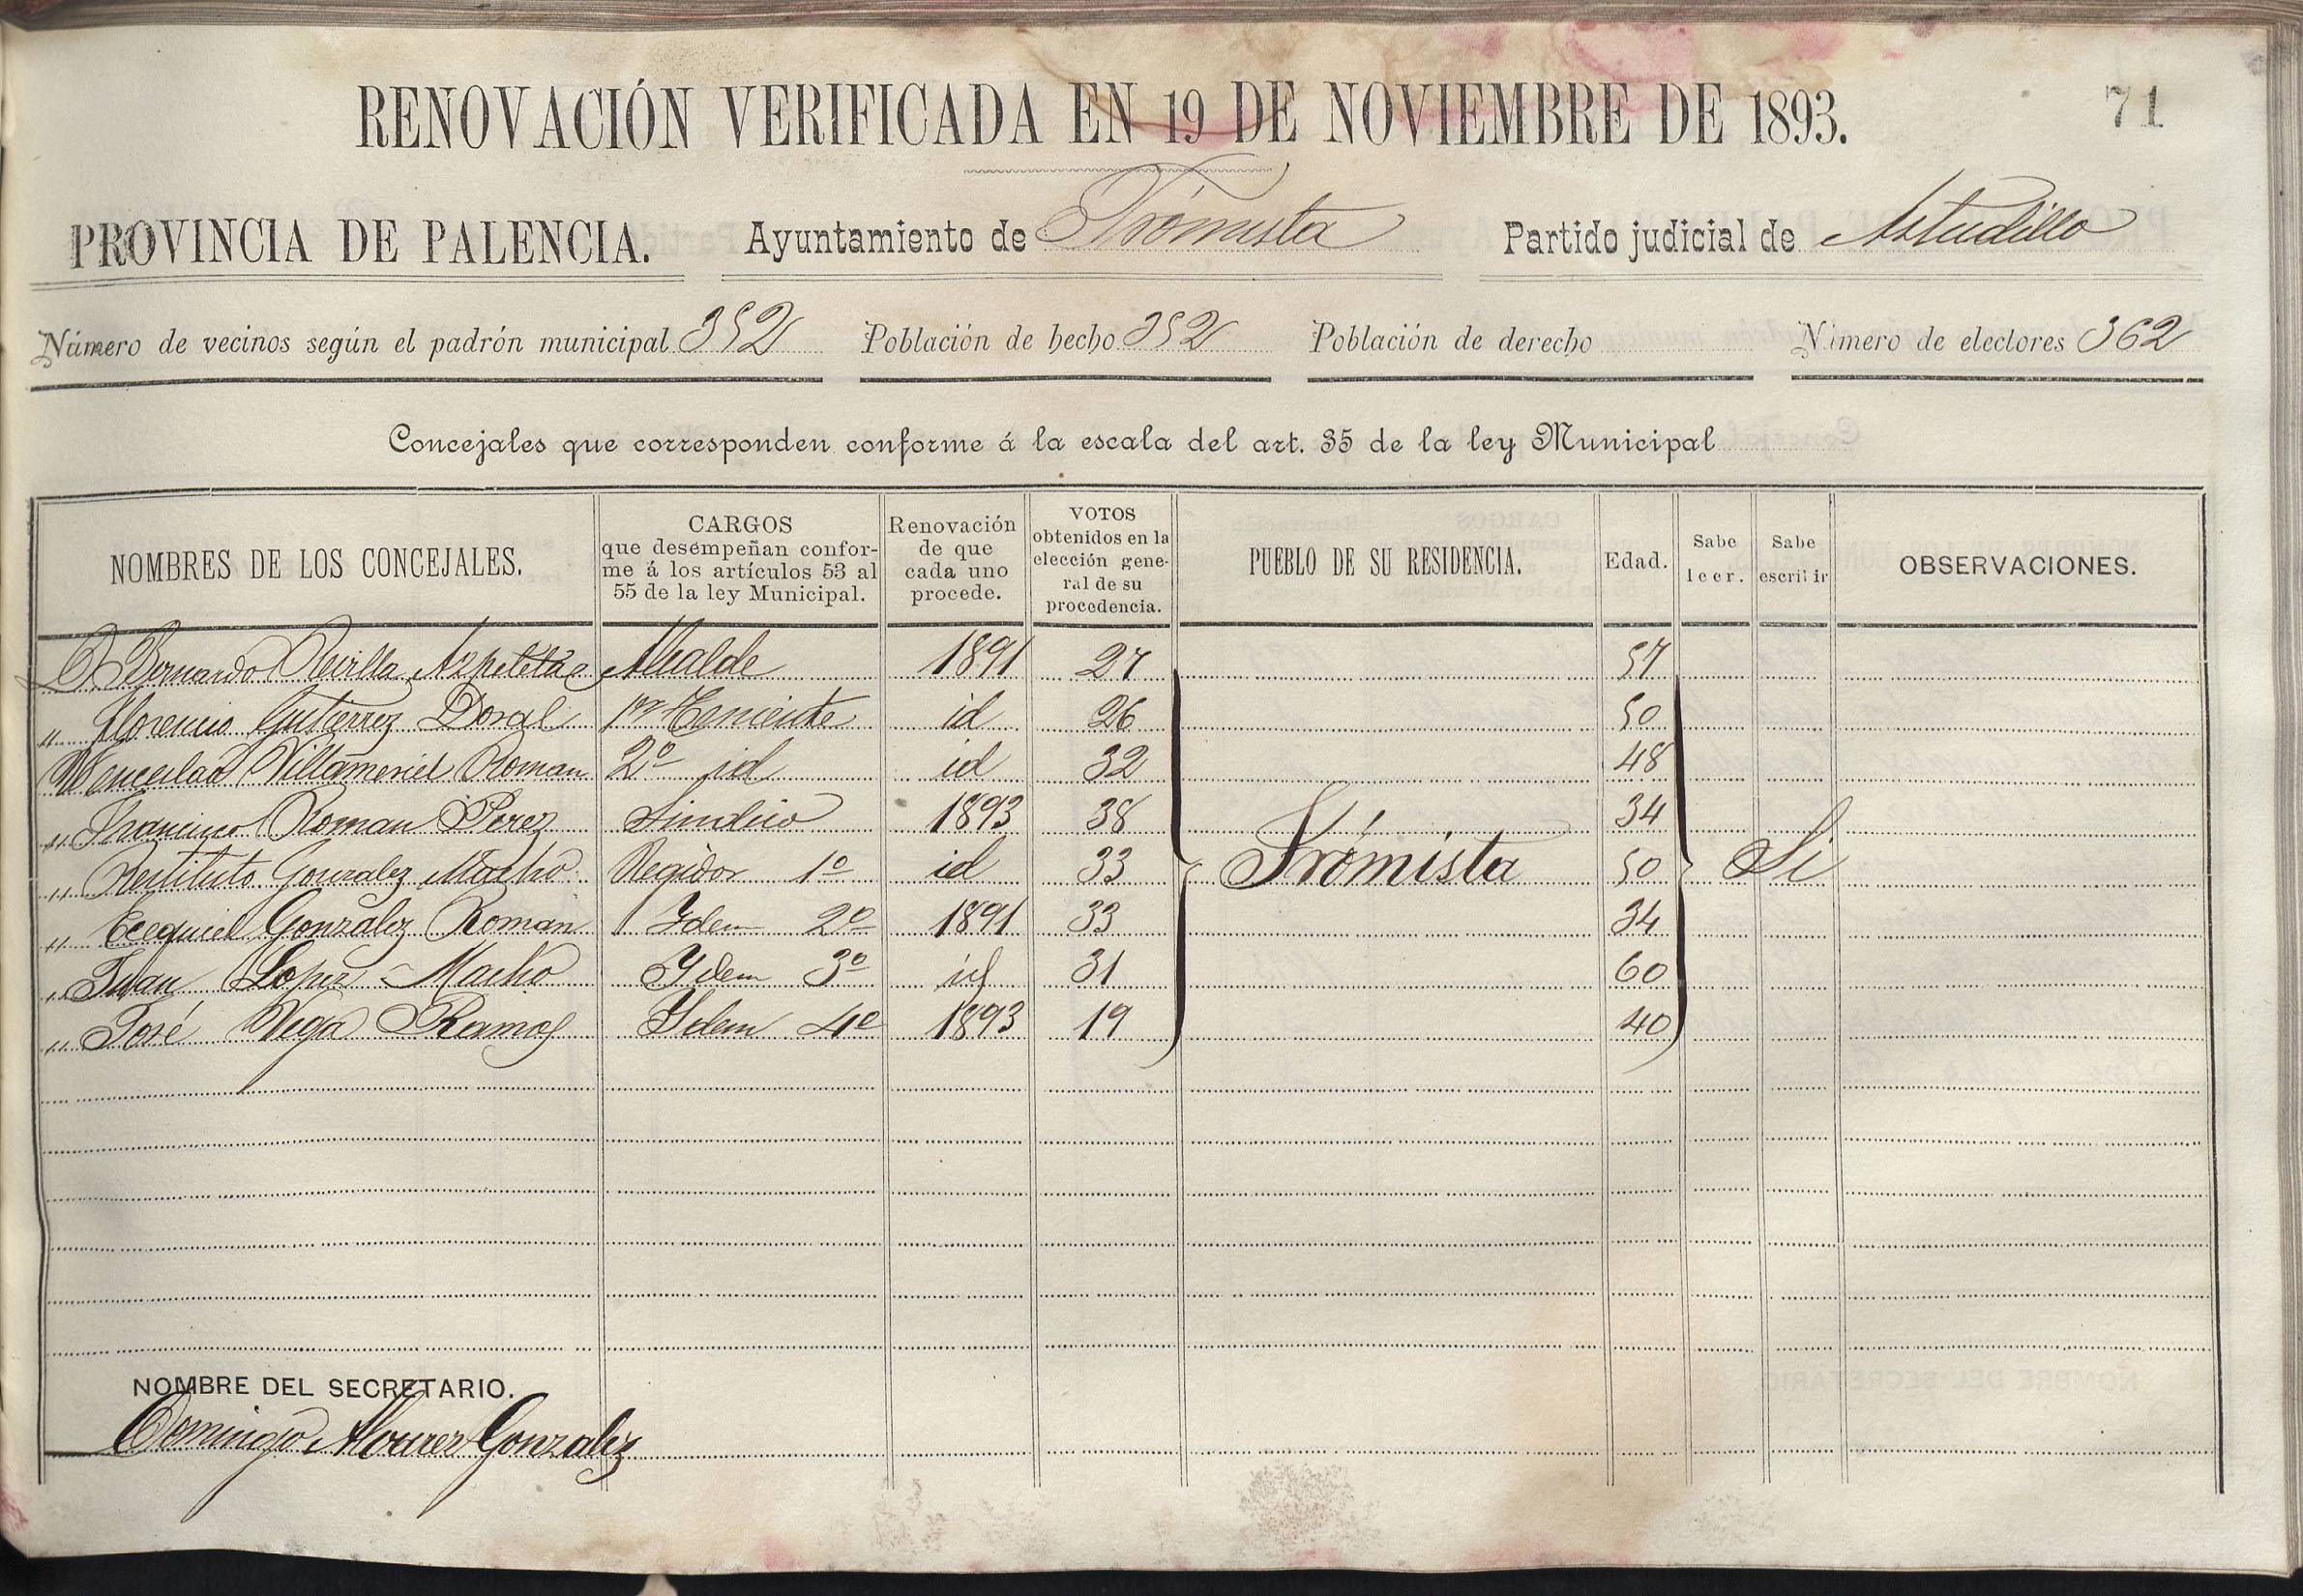 RENOVACIÓN VERIFICADA EN 19 DE NOVIEMBRE DE 1893.
71
PROVINCIA DE PALENCIA. Ayuntamiento de Frómista Partido judicial de Astudillo
Número de vecinos según el padrón municipal 352 Población de hecho 352 Población de derecho Número de electores 362
Concejales que corresponden conforme á la escala del art. 35 de la ley Municipal
NOMBRES DE LOS CONCEJALES. CARGOS que desempeñan conforme á los artículos 53 al 55 de la ley Municipal. Renovación de que cada uno procede. VOTOS obtenidos en la elección general de su procedencia. PUEBLO DE SU RESIDENCIA. Edad. Sabe leer. Sabe escribir OBSERVACIONES.
D. Bernardo Revilla Azpeletia Alcalde 1891 27 57
" Florencio Gutierrez Doral 1er Teniente id 26 50
Wenceslao Villameriel Roman 2º id id 32 48
" Francisco Roman Perez Sindico 1893 38 34
" Restituto Gonzalez Macho Regidor 1º id 33 Frómista 50 Si
" Ecequiel Gonzalez Roman Idem 2º 1891 33 34
" Juan Lopez Macho Idem 3º id 31 60
" José Vega Ramos Idem 4º 1893 19 40
NOMBRE DEL SECRETARIO.
Domingo Alvarez Gonzalez